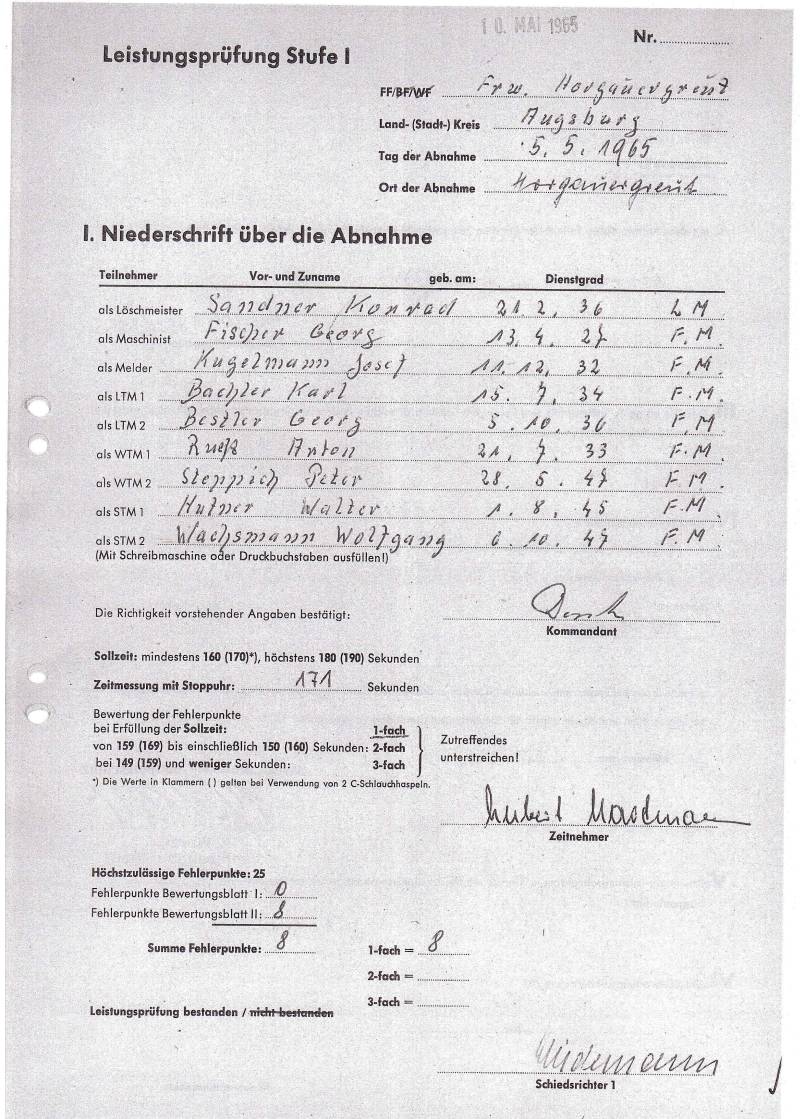 10. MAI 1965
Nr.
Leistungsprüfung Stufe I
FF/BF/WF Frw. Horgauergreut
Land- (Stadt-) Kreis Augsburg
Tag der Abnahme 5. 5. 1965
Ort der Abnahme Horgauergreut
I. Niederschrift über die Abnahme
Teilnehmer Vor- und Zuname geb. am: Dienstgrad
als Löschmeister Sandner Konrad 21 2. 36 L M
als Maschinist Fischer Georg 13. 4. 27 F. M.
als Melder Kugelmann Josef 11. 12. 32 F. M.
als LTM 1 Bachler Karl 15. 7. 34 F. M.
als LTM 2 Bestler Georg 5. 10. 36 F. M
als WTM 1 Rueß Anton 21. 7. 33 F. M.
als WTM 2 Steppich Peter 28. 5. 47 F. M.
als STM 1 Hutner Walter 1. 8. 45 F. M.
als STM 2 Wachsmann Wolfgang 6. 10. 47 F. M.
(Mit Schreibmaschine oder Druckbuchstaben ausfüllen!)
Die Richtigkeit vorstehender Angaben bestätigt:
Kommandant
Sollzeit: mindestens 160 (170)*), höchstens 180 (190) Sekunden
Zeitmessung mit Stoppuhr: 171 Sekunden
Bewertung der Fehlerpunkte
bei Erfüllung der Sollzeit: 1-fach
von 159 (169) bis einschließlich 150 (160) Sekunden: 2-fach
bei 149 (159) und weniger Sekunden: 3-fach
Zutreffendes
unterstreichen!
*) Die Werte in Klammern ( ) gelten bei Verwendung von 2 C-Schlauchhaspeln.
Zeitnehmer
Höchstzulässige Fehlerpunkte: 25
Fehlerpunkte Bewertungsblatt I: 0
Fehlerpunkte Bewertungsblatt II: 8
Summe Fehlerpunkte: 8 1-fach = 8
2-fach =
3-fach =
Leistungsprüfung bestanden / nicht bestanden
Wiedemann
Schiedsrichter 1